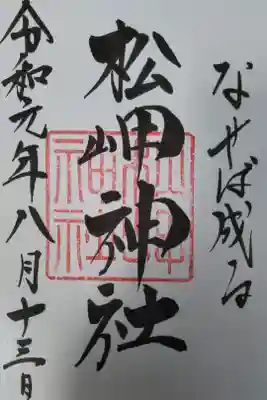 なせば成る
松岬神社
令和元年八月十三日